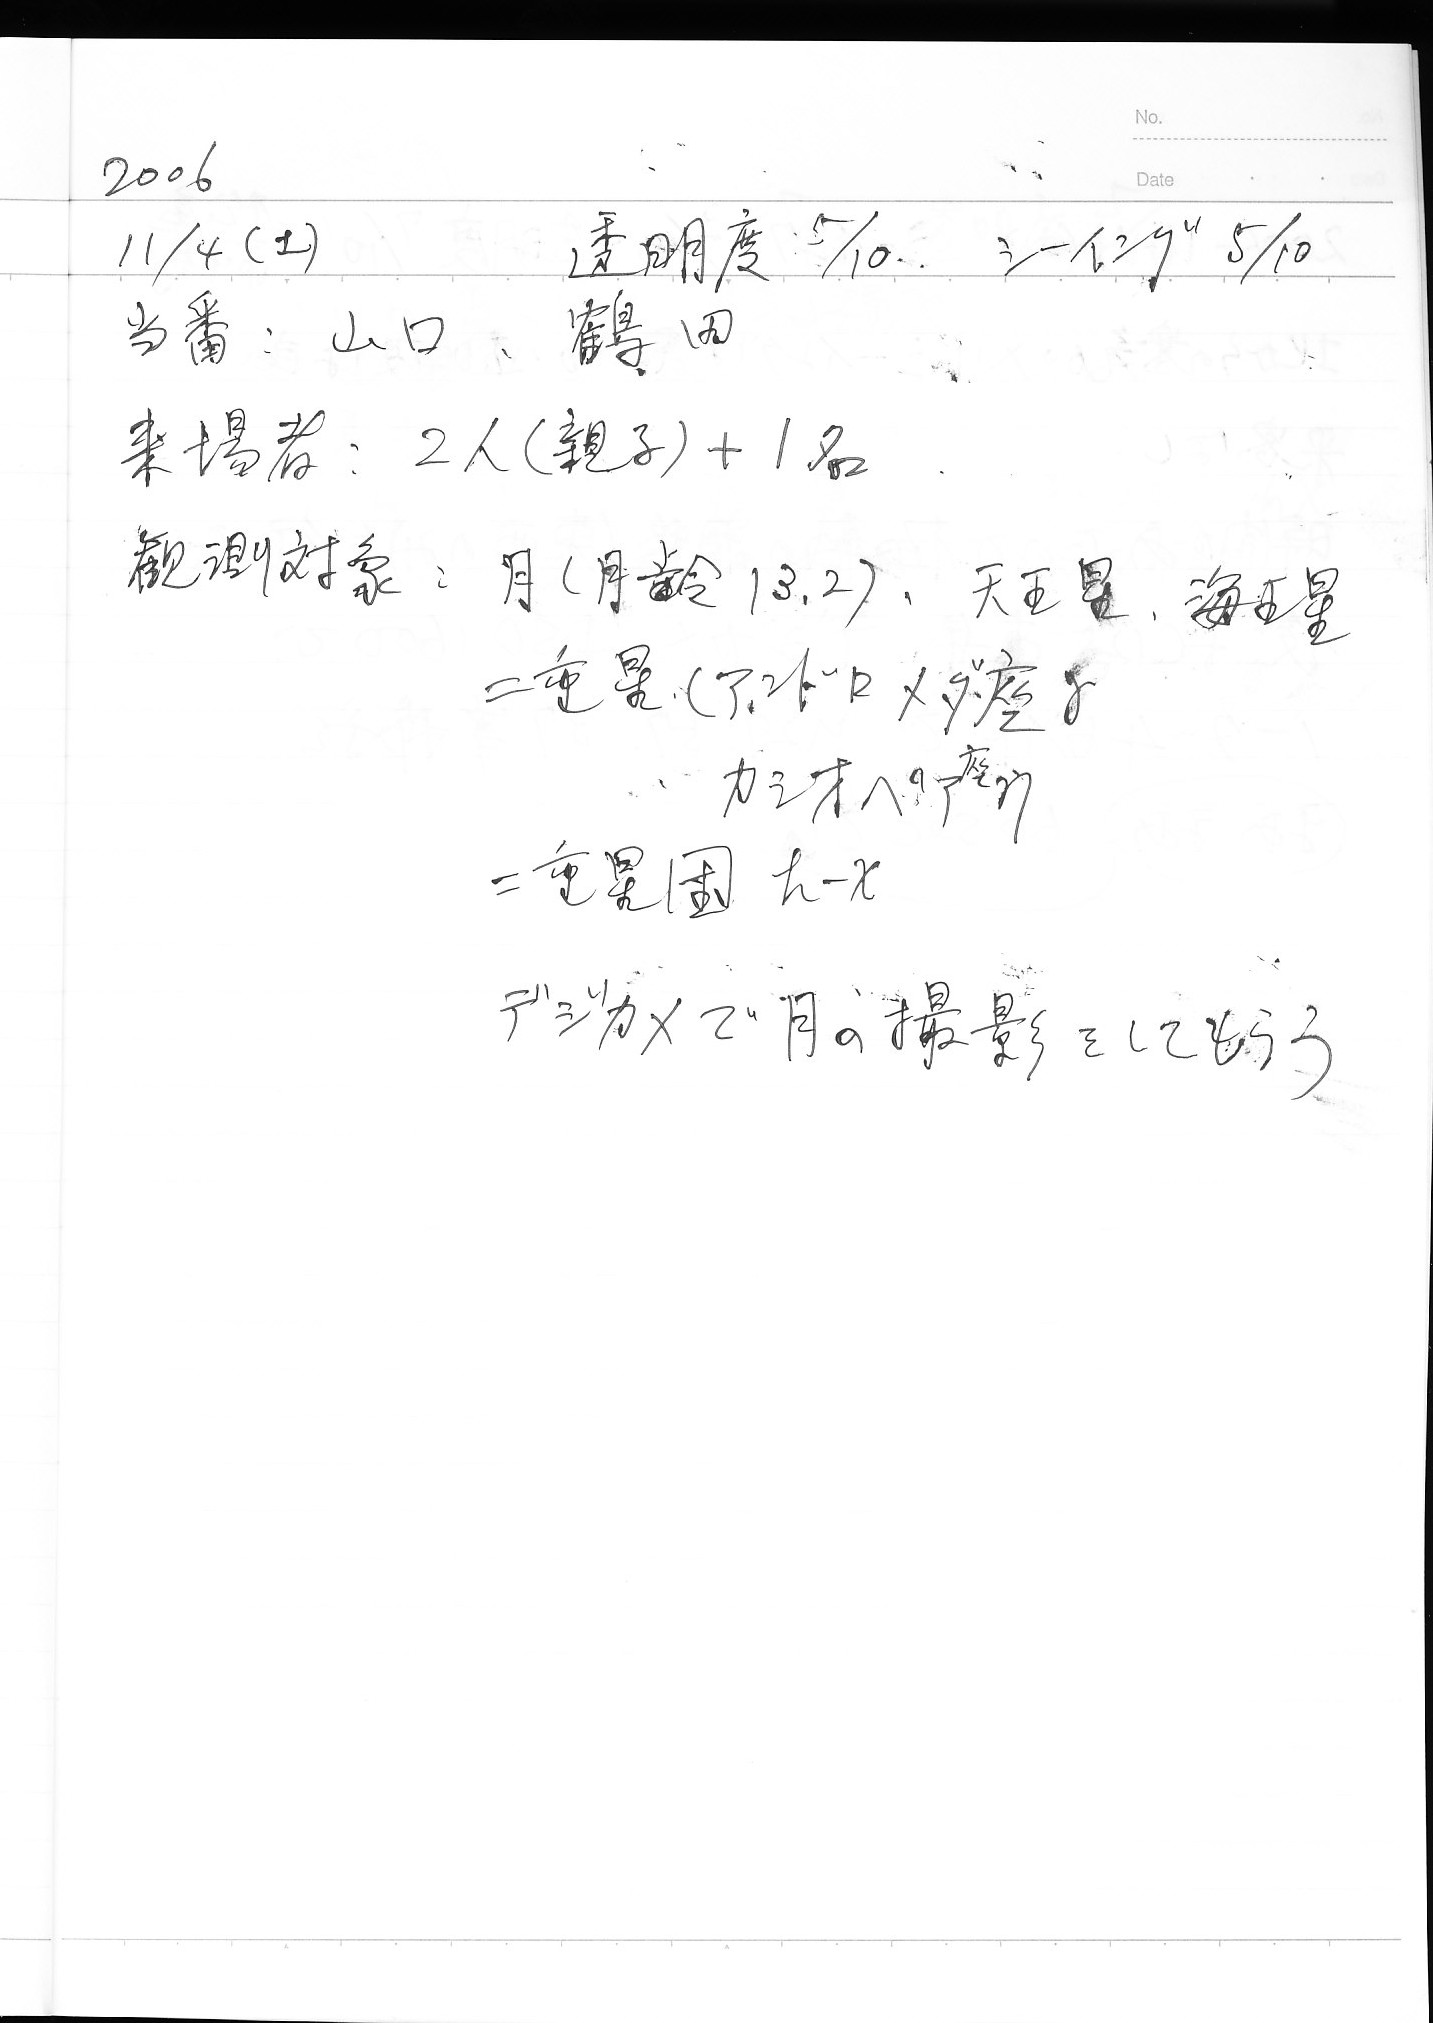 No.
Date
2006
11/4(土) 透明度 5/10 シーイング 5/10
当番: 山口、鶴田
来場者: 2人(親子)+1名
観測対象: 月(月齢13.2)、天王星、海王星
二重星(アンドロメダ座γ
カシオペア座η
二重星団 h-χ
デジカメで月の撮影をしてもらう